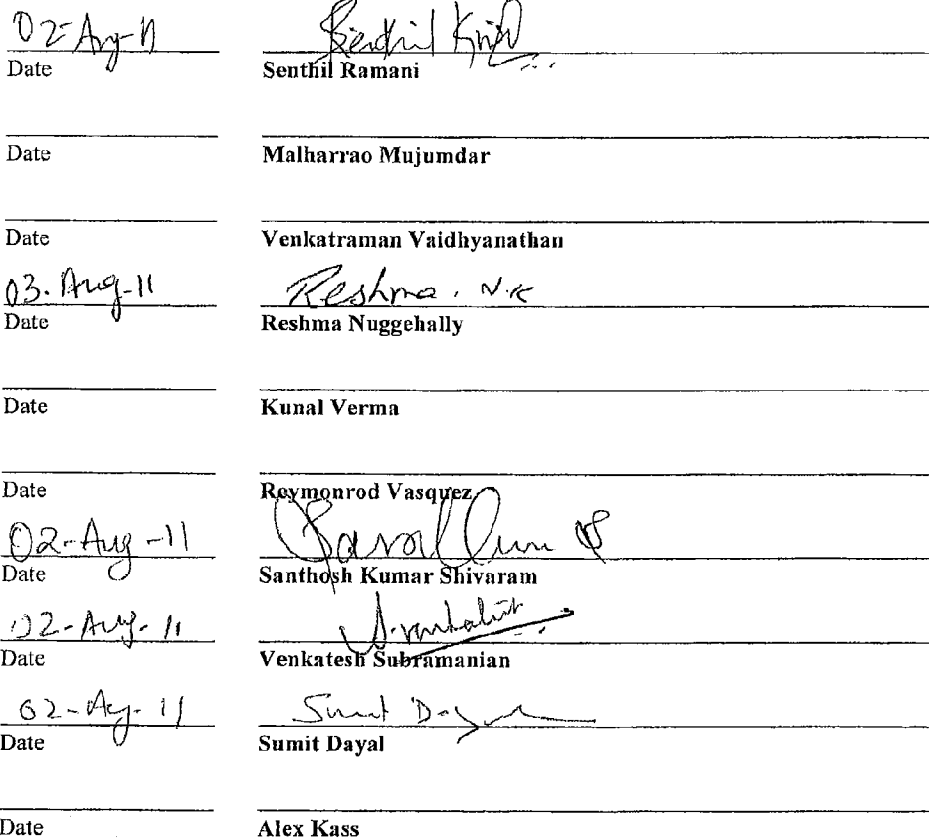 02-Aug-11
Date Senthil Ramani
Date Malharrao Mujumdar
Date Venkatraman Vaidhyanathan
03-Aug-11 Reshma. N.K
Date Reshma Nuggehally
Date Kunal Verma
Date Reymonrod Vasquez
02-Aug-11
Date Santhosh Kumar Shivaram
02-Aug-11
Date Venkatesh Subramanian
02-Aug-11 Sumit Dayal
Date Sumit Dayal
Date Alex Kass